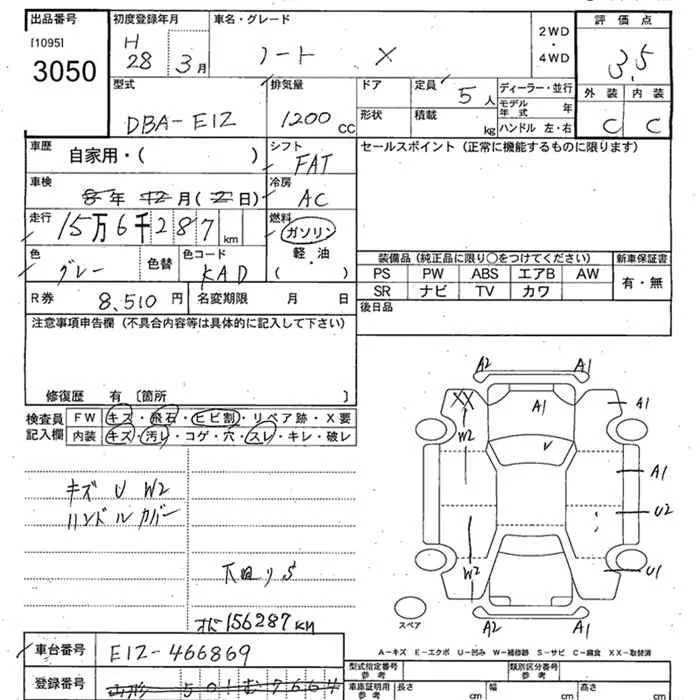 出品番号
[1095]
3050
初度登録年月
H 28 3月
車名・グレード
ノート X
2WD
・
4WD
評価点
3.5
外装 内装
C C
型式
DBA-E12
排気量
1200 CC
ドア
形状
定員 5人
積載 kg
ディーラー・並行
モデル年式 年
ハンドル 左・右
車歴 自家用・( )
シフト FAT
セールスポイント(正常に機能するものに限ります)
車検 8年 12月(2日)
冷房 AC
走行 15万6千287km
燃料 ガソリン
軽・油
( )
色 グレー
色替
色コード KAD
装備品(純正品に限り○をつけてください)
新車保証書
PS PW ABS エアB AW
有・無
SR ナビ TV カワ
R券 8,510円
名変期限 月 日
後日品
注意事項申告欄(不具合内容等は具体的に記入して下さい)
修復歴 有〔箇所 〕
検査員記入欄
FW キズ・飛石・ヒビ割・リペア跡・X要
内装 キズ・汚レ・コゲ・穴・スレ・キレ・破レ
キズ U W2
ハンドルカバー
下回りS
メーター156287km
A2 A1
XX A1 A1
W2 V
A1
U2
W2 U1
A2 A1
スペア
A-キズ E-エクボ U-凹み W-補修跡 S-サビ C-腐食 XX-取替済
車台番号 E12-466869
登録番号 山形 501 む 7664
型式指定番号 参考
類別区分番号 参考
車庫証明用 参考
長さ cm
幅 cm
高さ cm